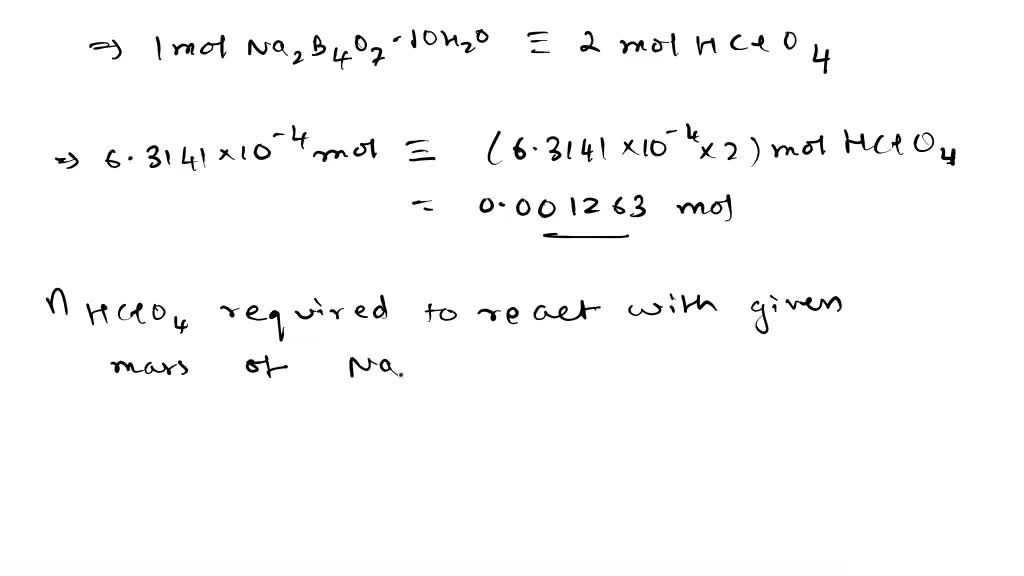 ⇒ 1 mol Na₂B₄O₇·10H₂O ≡ 2 mol HClO₄
⇒ 6.3141×10⁻⁴ mol ≡ (6.3141×10⁻⁴×2) mol HClO₄
= 0.001263 mol
n HClO₄ required to react with given
mass of Na.